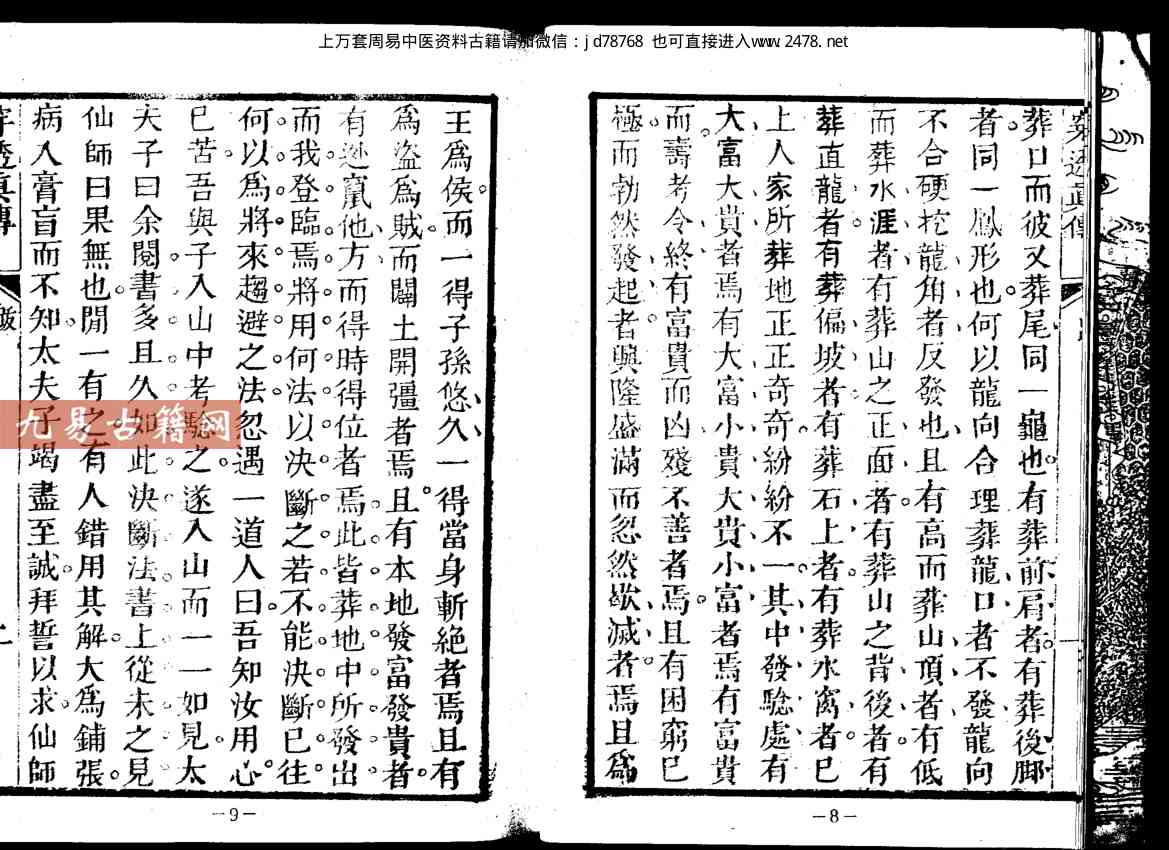 上万套周易中医资料古籍请加微信：jd78768 也可直接进入www.2478.net
葬口而彼又葬尾同一龜也有葬前肩者有葬後脚
者同一鳳形也何以龍向合理葬龍口者不發龍向
不合硬挖龍角者反發也且有高而葬山頂者有低
而葬水涯者有葬山之正面者有葬山之背後者有
葬直龍者有葬偏坡者有葬石上者有葬水窩者已
上人家所葬地正正奇奇紛紛不一其中發騐處有
大富大貴者焉有大富小貴大貴小富者焉有富貴
而壽考令終有富貴而凶殘不善者焉且有困窮已
極而勃然發起者興隆盛滿而忽然歇滅者焉且爲
王爲侯而一得子孫悠久一得當身斬絕者焉且有
爲盜爲賊而闢土開疆者焉且有本地發富發貴者
有逃竄他方而得時得位者焉此皆葬地中所發出
而我登臨焉將用何法以決斷之若不能決斷已往
何以爲將來趨避之法忽遇一道人曰吾知汝用心
已苦吾與子入山中考驗之遂入山而一一如見太
夫子曰余閱書多且久如此決斷法書上從未之見
仙師曰果無也閒一有之有人錯用其解大爲鋪張
病入膏盲而不知太夫子竭盡至誠拜誓以求仙師
九易古籍网
—9—
—8—